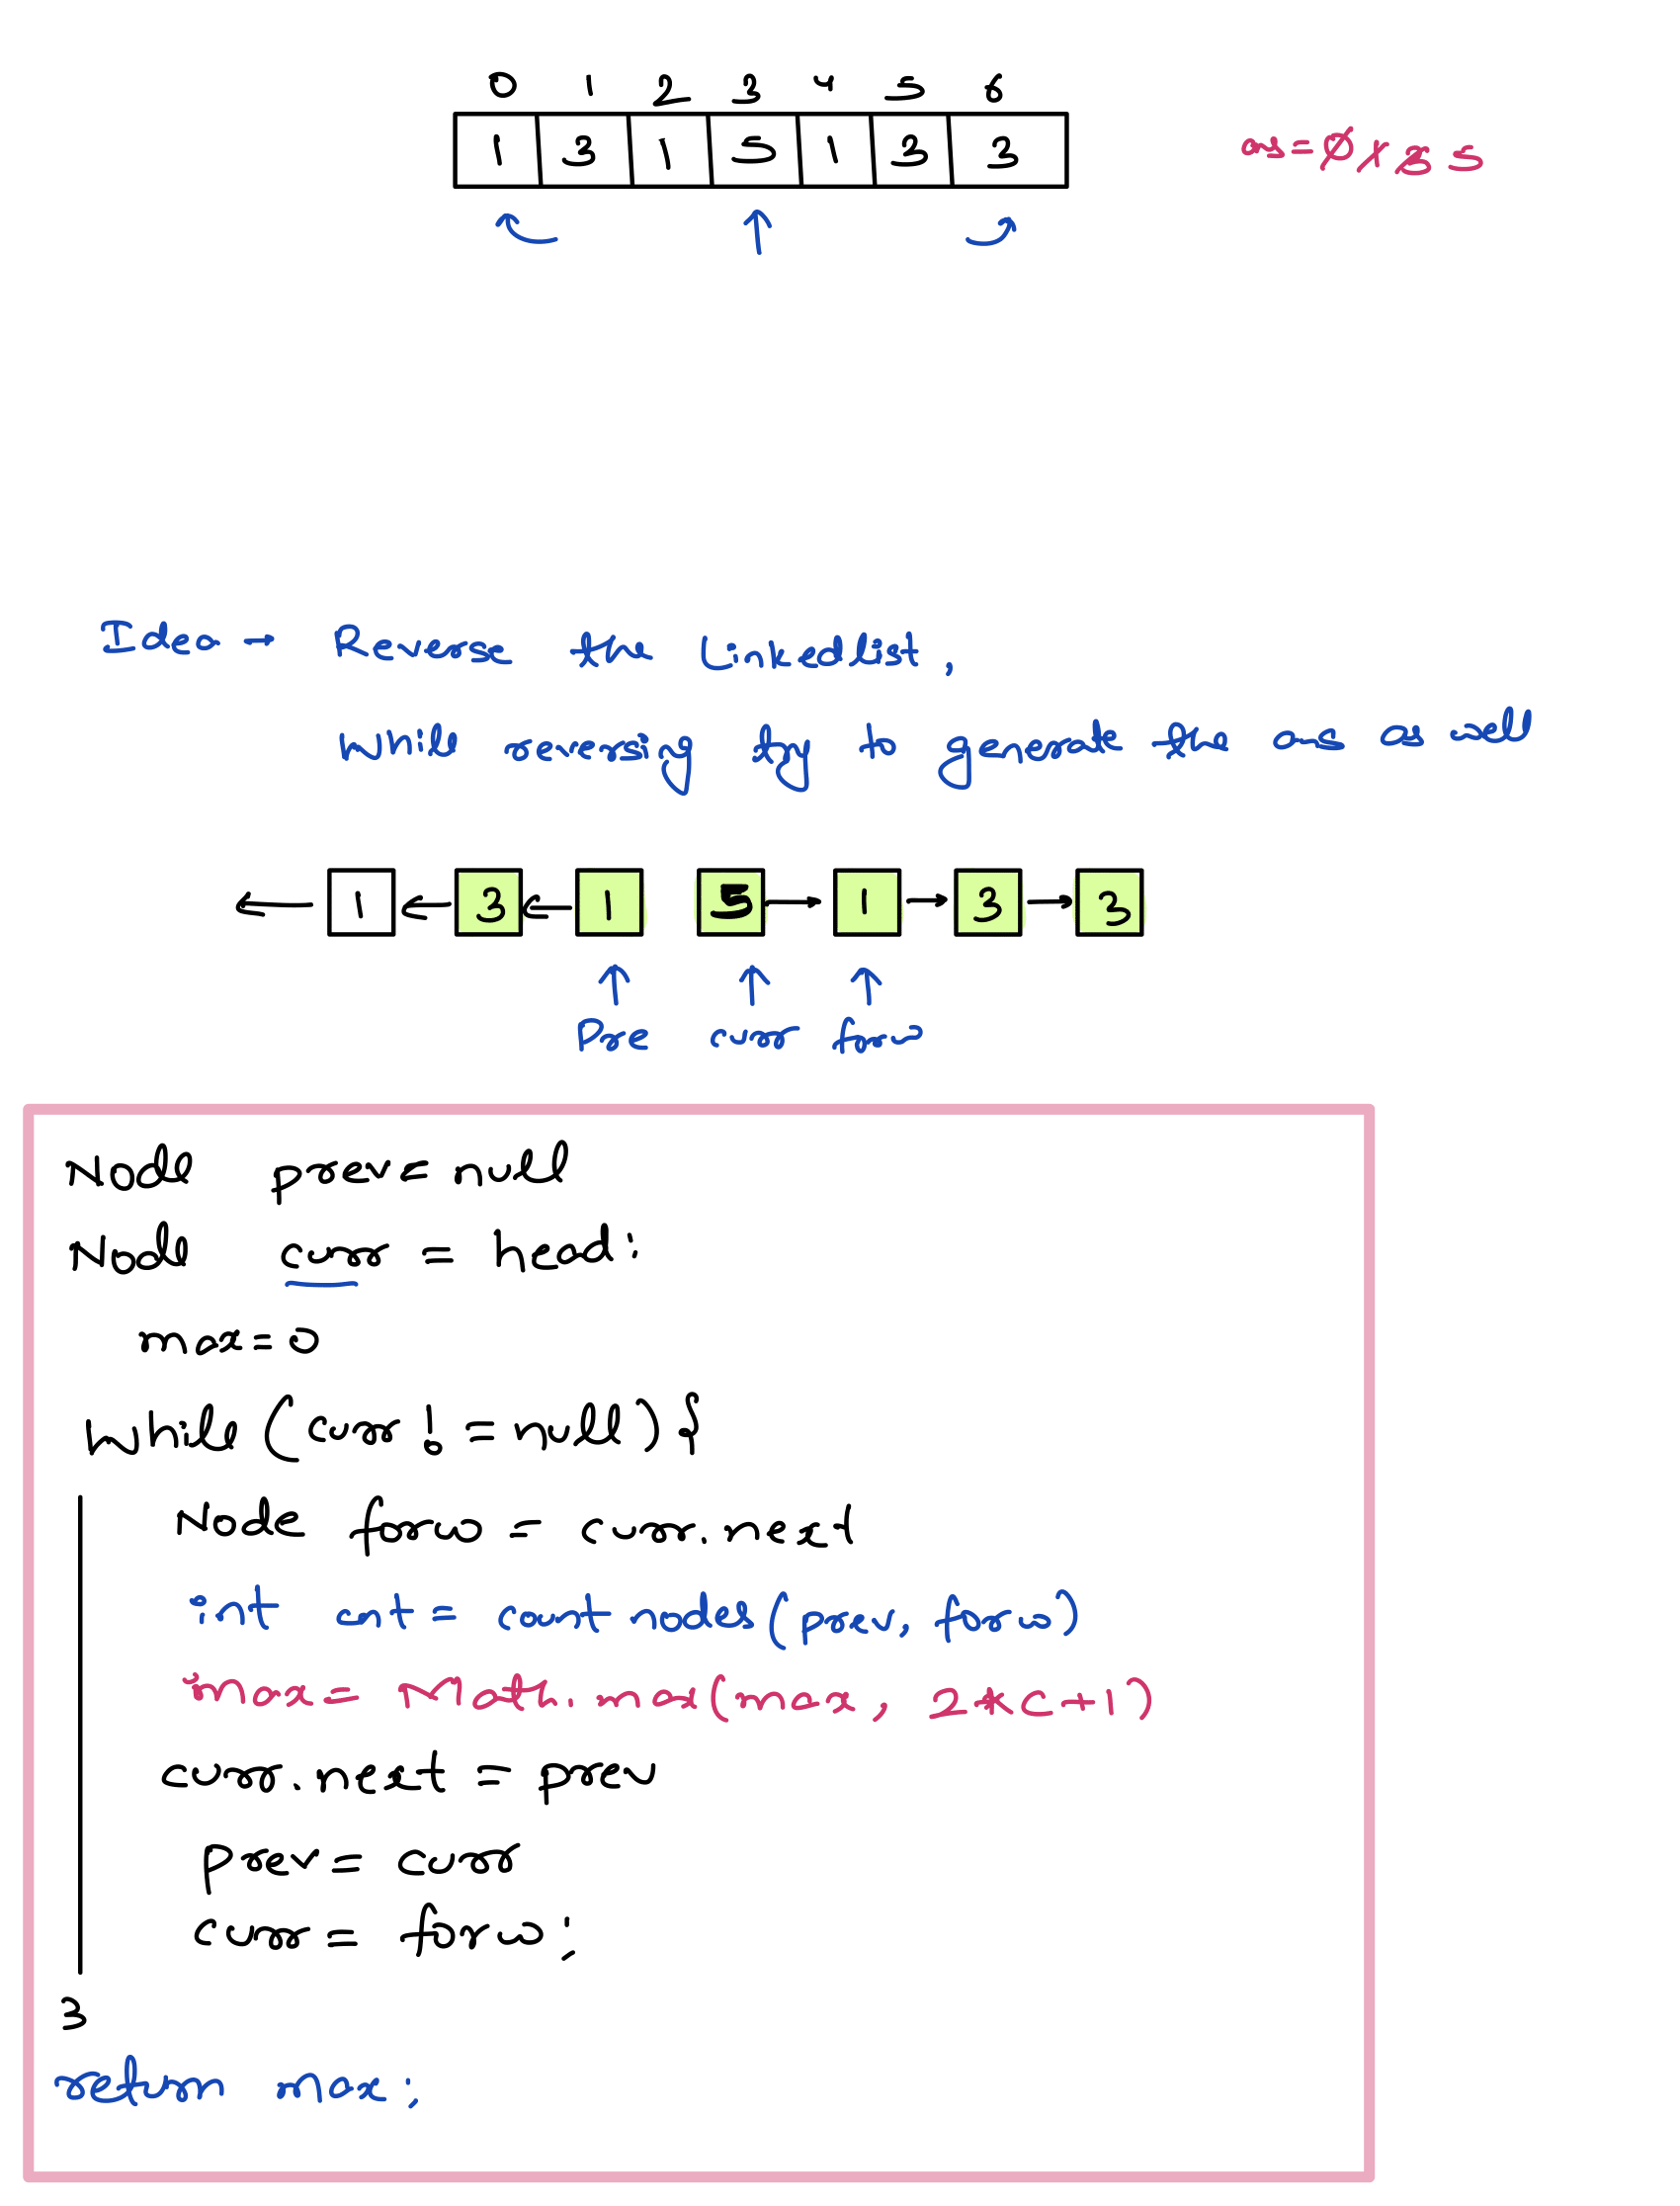 0 1 2 3 4 5 6
1 3 1 5 1 3 3
as = 0 1 3 5
Idea → Reverse the Linkedlist,
While reversing try to generate the ans as well
1 3 1 5 1 3 3
Pre curr forw
Node prev = null
Node curr = head;
max = 0
While (curr != null) {
Node forw = curr.next
int cnt = count nodes (prev, forw)
max = Math.max(max, 2*c+1)
curr.next = prev
prev = curr
curr = forw;
}
return max;